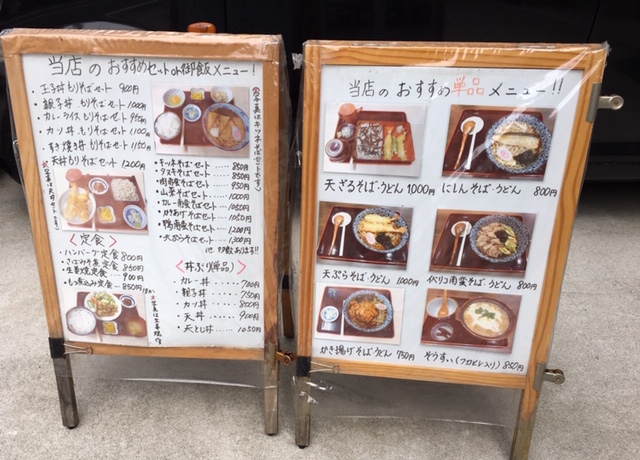 当店の おすすめセットor御飯メニュー!
玉子丼 もりそばセット 900円
・親子丼 もりそばセット 1000円
・カレーライス もりそばセット 950円
・カツ丼 もりそばセット 1100円
・すき焼き丼 もりそばセット 1150円
・天丼もりそばセット 1200円
※写真は天丼セットです。
※写真はキツネそばセットです。
・キツネそばセット 850円
・タヌキそばセット 850円
・肉南蛮そばセット 950円
・山菜そばセット 1000円
・カレー南蛮そばセット 1050円
・かきあげそばセット 1050円
・鴨南蛮そばセット 1200円
・天ぷらそばセット 1300円
〈定食〉
・ハンバーグ定食 800円
・さばみそ煮定食 850円
・生姜焼定食 900円
・もつ煮込み定食 850円
〈丼ぶり(単品)〉
・カレー丼 700円
・親子丼 750円
・カツ丼 800円
・天丼 900円
・天とじ丼 1050
当店の おすすめ単品メニュー!!
天ざるそば・うどん 1000円
にしんそば・うどん 800円
天ぷらそば・うどん 1000円
イベリコ南蛮そば・うどん 800円
かき揚げそば・うどん 750円
ぞうすい(フカヒレ入り) 850円